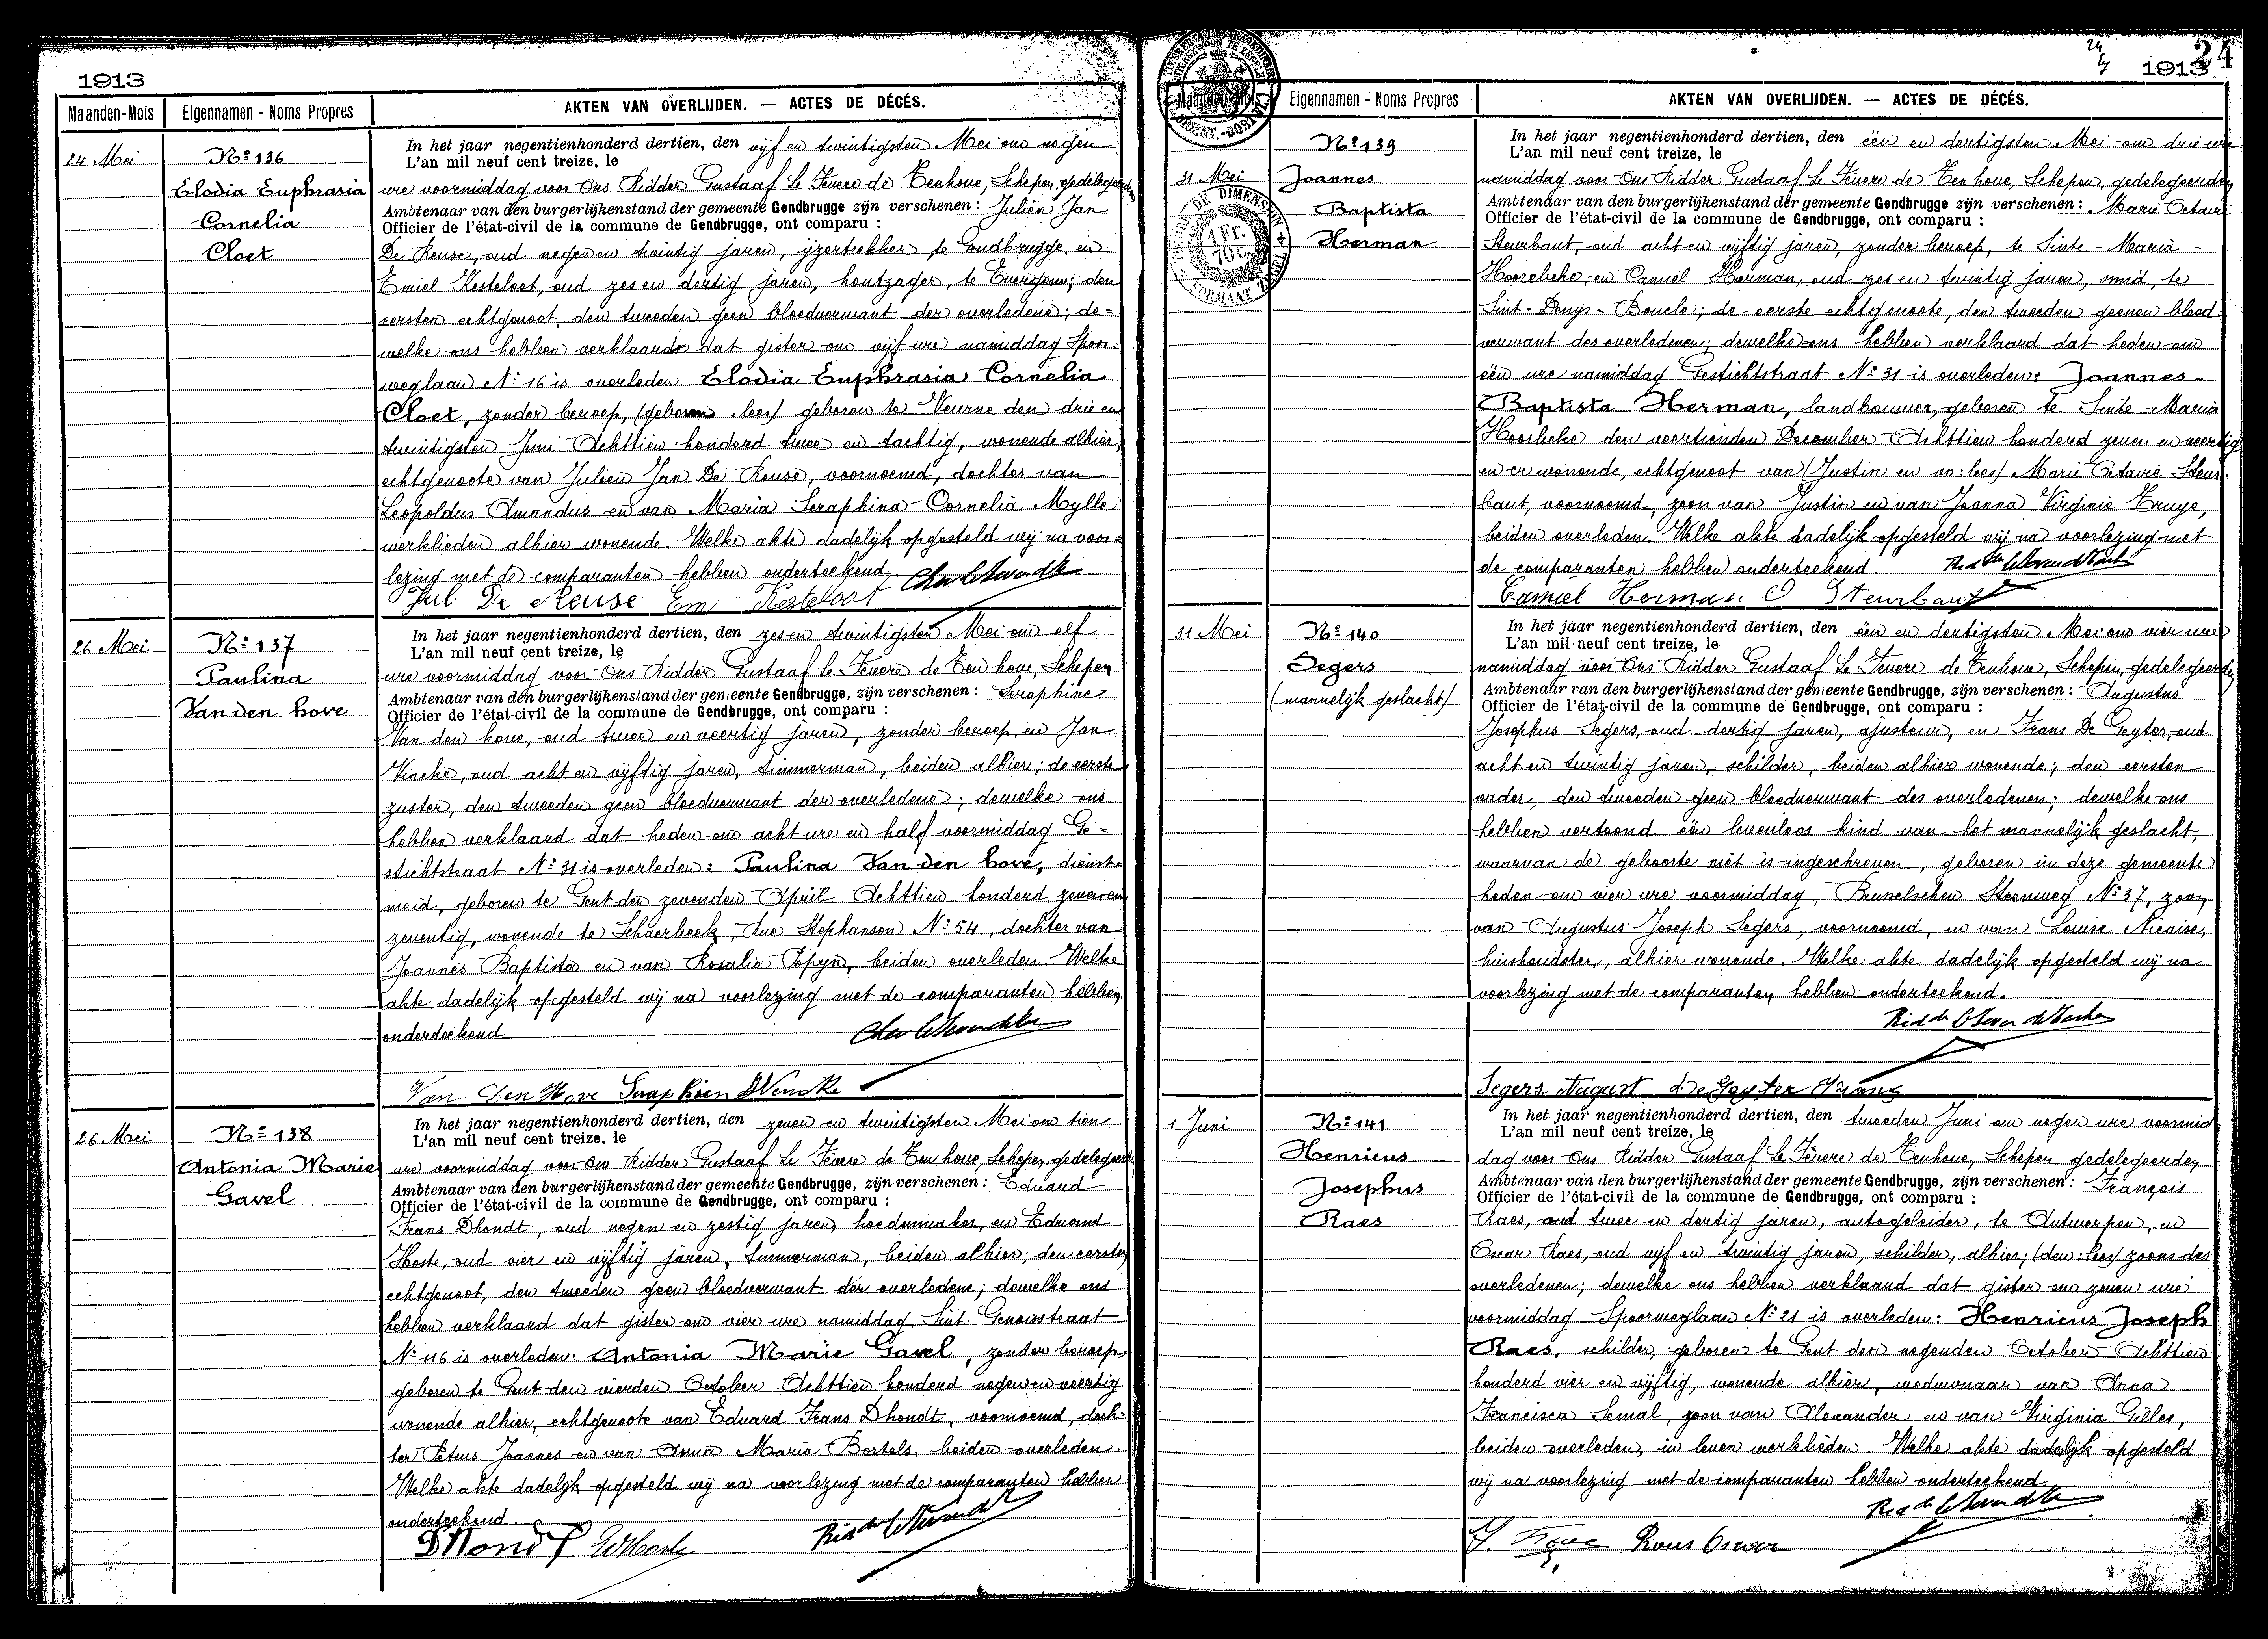 1913
Maanden-Mois
Eigennamen - Noms Propres
AKTEN VAN OVERLIJDEN. — ACTES DE DÉCÉS.
24 Mei
No 136
Elodia Euphrasia
Cornelia
Cloet
In het jaar negentienhonderd dertien, den vijf en twintigsten Mei om negen
L'an mil neuf cent treize, le
ure voormiddag voor Ons Ridder Gustaaf Le Fevere de Tenhove, Schepen, gedelegeerden
Ambtenaar van den burgerlijkenstand der gemeente Gendbrugge zijn verschenen: Julien Jan
Officier de l'état-civil de la commune de Gendbrugge, ont comparu :
De Reuse, oud negen en twintig jaren, ijzertrekker te Gendbrugge, en
Emiel Kesteloot, oud zes en dertig jaren, houtzager, te Evergem; den
eersten echtgenoot, den tweeden geen bloedverwant der overledene; de-
welke ons hebben verklaard dat gister om vijf ure namiddag Spoor-
weglaan No 16 is overleden Elodia Euphrasia Cornelia
Cloet, zonder beroep, (geboren lees) geboren te Veurne den drie en
twintigsten Juni Achttien honderd twee en tachtig, wonende alhier,
echtgenoote van Julien Jan De Reuse, voornoemd, dochter van
Leopoldus Amandus en van Maria Seraphina Cornelia Mylle
werklieden alhier wonende. Welke akte dadelijk opgesteld wij na voor-
lezing met de comparanten hebben onderteekend
Jul De Reuse Em Kesteloot
26 Mei
No 137
Paulina
Van den hove
In het jaar negentienhonderd dertien, den zes en twintigsten Mei om elf
L'an mil neuf cent treize, le
ure voormiddag voor Ons Ridder Gustaaf Le Fevere de Ten hove, Schepen
Ambtenaar van den burgerlijkenstand der gemeente Gendbrugge, zijn verschenen: Seraphine
Officier de l'état-civil de la commune de Gendbrugge, ont comparu :
Van den hove, oud twee en veertig jaren, zonder beroep, en Jan
Vincke, oud acht en vijftig jaren, timmerman, beiden alhier; de eerste
zuster, den tweeden geen bloedverwant der overledene; dewelke ons
hebben verklaard dat heden om acht ure en half voormiddag Ge-
stichtstraat No 31 is overleden: Paulina Van den hove, dienst-
meid, geboren te Gent den zevenden April Achttien honderd zeven en
zeventig, wonende te Schaerbeek, Rue Stephanson No 54, dochter van
Joannes Baptista en van Rosalia Popyn, beiden overleden. Welke
akte dadelijk opgesteld wij na voorlezing met de comparanten hebben
onderteekend.
Van Den Hove Seraphien Vincke
26 Mei
No 138
Antonia Marie
Gavel
In het jaar negentienhonderd dertien, den zeven en twintigsten Mei om tien
L'an mil neuf cent treize, le
ure voormiddag voor Ons Ridder Gustaaf Le Fevere de Ten hove, Schepen, gedelegeerden
Ambtenaar van den burgerlijkenstand der gemeente Gendbrugge, zijn verschenen: Eduard
Officier de l'état-civil de la commune de Gendbrugge, ont comparu :
Frans Dhondt, oud negen en zestig jaren, hoedenmaker, en Eduard
Hoste, oud vier en vijftig jaren, timmerman, beiden alhier; den eersten
echtgenoot, den tweeden geen bloedverwant der overledene; dewelke ons
hebben verklaard dat gister om vier ure namiddag Sint. Genoisstraat
No 116 is overleden: Antonia Marie Gavel, zonder beroep,
geboren te Gent den vierden October Achttien honderd negen en veertig
wonende alhier, echtgenoote van Eduard Frans Dhondt, voornoemd, doch-
ter Petrus Joannes en van Anna Maria Bortels, beiden overleden.
Welke akte dadelijk opgesteld wij na voorlezing met de comparanten hebben
onderteekend.
DHondt EdHoste
24
24
1913
Maanden-Mois
Eigennamen - Noms Propres
AKTEN VAN OVERLIJDEN. — ACTES DE DÉCÉS.
DE DIMENSION
1 Fr.
70 C.
FORMAAT ZEGEL
31 Mei
No 139
Joannes
Baptista
Herman
In het jaar negentienhonderd dertien, den één en dertigsten Mei om drie ure
L'an mil neuf cent treize, le
namiddag voor Ons Ridder Gustaaf Le Fevere de Ten hove, Schepen, gedelegeerden
Ambtenaar van den burgerlijkenstand der gemeente Gendbrugge zijn verschenen: Marie Octavie
Officier de l'état-civil de la commune de Gendbrugge, ont comparu :
Steurbaut, oud acht en vijftig jaren, zonder beroep, te Sinte-Maria-
Hoorebeke, en Camiel Herman, oud zes en twintig jaren, smid, te
Sint-Denys-Boucle; de eerste echtgenoote, den tweeden geenen bloed-
verwant des overledenen; dewelke ons hebben verklaard dat heden om
één ure namiddag Gestichtstraat No 31 is overleden: Joannes-
Baptista Herman, landbouwer, geboren te Sinte-Maria
Hoorbeke den veertienden December Achttien honderd zeven en veertig
en er wonende, echtgenoot van (Justin en vo: lees) Marie Octavie Steur-
baut, voornoemd, zoon van Justin en van Joanna Virginie Truye,
beiden overleden. Welke akte dadelijk opgesteld wij na voorlezing met
de comparanten hebben onderteekend
Camiel Herman O Steurbaut
31 Mei
No 140
Segers
(mannelijk geslacht)
In het jaar negentienhonderd dertien, den één en dertigsten Mei om vier ure
L'an mil neuf cent treize, le
namiddag voor Ons Ridder Gustaaf Le Fevere de Tenhove, Schepen, gedelegeerden
Ambtenaar van den burgerlijkenstand der gemeente Gendbrugge, zijn verschenen: Augustus
Officier de l'état-civil de la commune de Gendbrugge, ont comparu :
Josephus Segers, oud dertig jaren, ajusteur, en Frans De Geyter, oud
acht en twintig jaren, schilder, beiden alhier wonende; den eersten
vader, den tweeden geen bloedverwant des overledenen; dewelke ons
hebben vertoond één levenloos kind van het mannelijk geslacht,
waarvan de geboorte niet is ingeschreven, geboren in deze gemeente
heden om vier ure voormiddag, Brusselschen Steenweg No 37, zoon
van Augustus Joseph Segers, voornoemd, en van Louise Nicaise,
huishoudster, alhier wonende. Welke akte dadelijk opgesteld wij na
voorlezing met de comparanten hebben onderteekend.
Segers August De Geyter Frans
1 Juni
No 141
Henricus
Josephus
Raes
In het jaar negentienhonderd dertien, den tweeden Juni om negen ure voormid-
L'an mil neuf cent treize, le
dag voor Ons Ridder Gustaaf Le Fevere de Tenhove, Schepen, gedelegeerden
Ambtenaar van den burgerlijkenstand der gemeente Gendbrugge, zijn verschenen: François
Officier de l'état-civil de la commune de Gendbrugge, ont comparu :
Raes, oud twee en dertig jaren, autogeleider, te Antwerpen, en
Oscar Raes, oud vijf en twintig jaren, schilder, alhier; (den: lees) zoons des
overledenen; dewelke ons hebben verklaard dat gister om zeven ure
voormiddag Spoorweglaan No 21 is overleden: Henricus Joseph
Raes, schilder, geboren te Gent den negenden October Achttien
honderd vier en vijftig, wonende alhier, weduwnaar van Anna
Francisca Semal, zoon van Alexander en van Virginia Gilles,
beiden overleden, in leven werklieden. Welke akte dadelijk opgesteld
wij na voorlezing met de comparanten hebben onderteekend
Raes Oscar